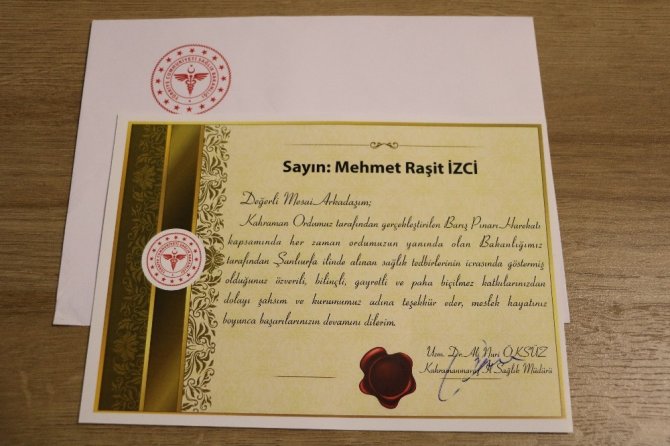 TÜRKİYE CUMHURİYETİ SAĞLIK BAKANLIĞI
Sayın: Mehmet Raşit İZCİ
Değerli Mesai Arkadaşım;
Kahraman Ordumuz tarafından gerçekleştirilen Barış Pınarı Harekatı
kapsamında her zaman ordumuzun yanında olan Bakanlığımız
tarafından Şanlıurfa ilinde alınan sağlık tedbirlerinin icrasında göstermiş
olduğunuz özverili, bilinçli, gayretli ve paha biçilmez katkılarınızdan
dolayı şahsım ve kurumumuz adına teşekkür eder, meslek hayatınız
boyunca başarılarınızın devamını dilerim.
Uzm. Dr. Ali Nuri ÖKSÜZ
Kahramanmaraş İl Sağlık Müdürü